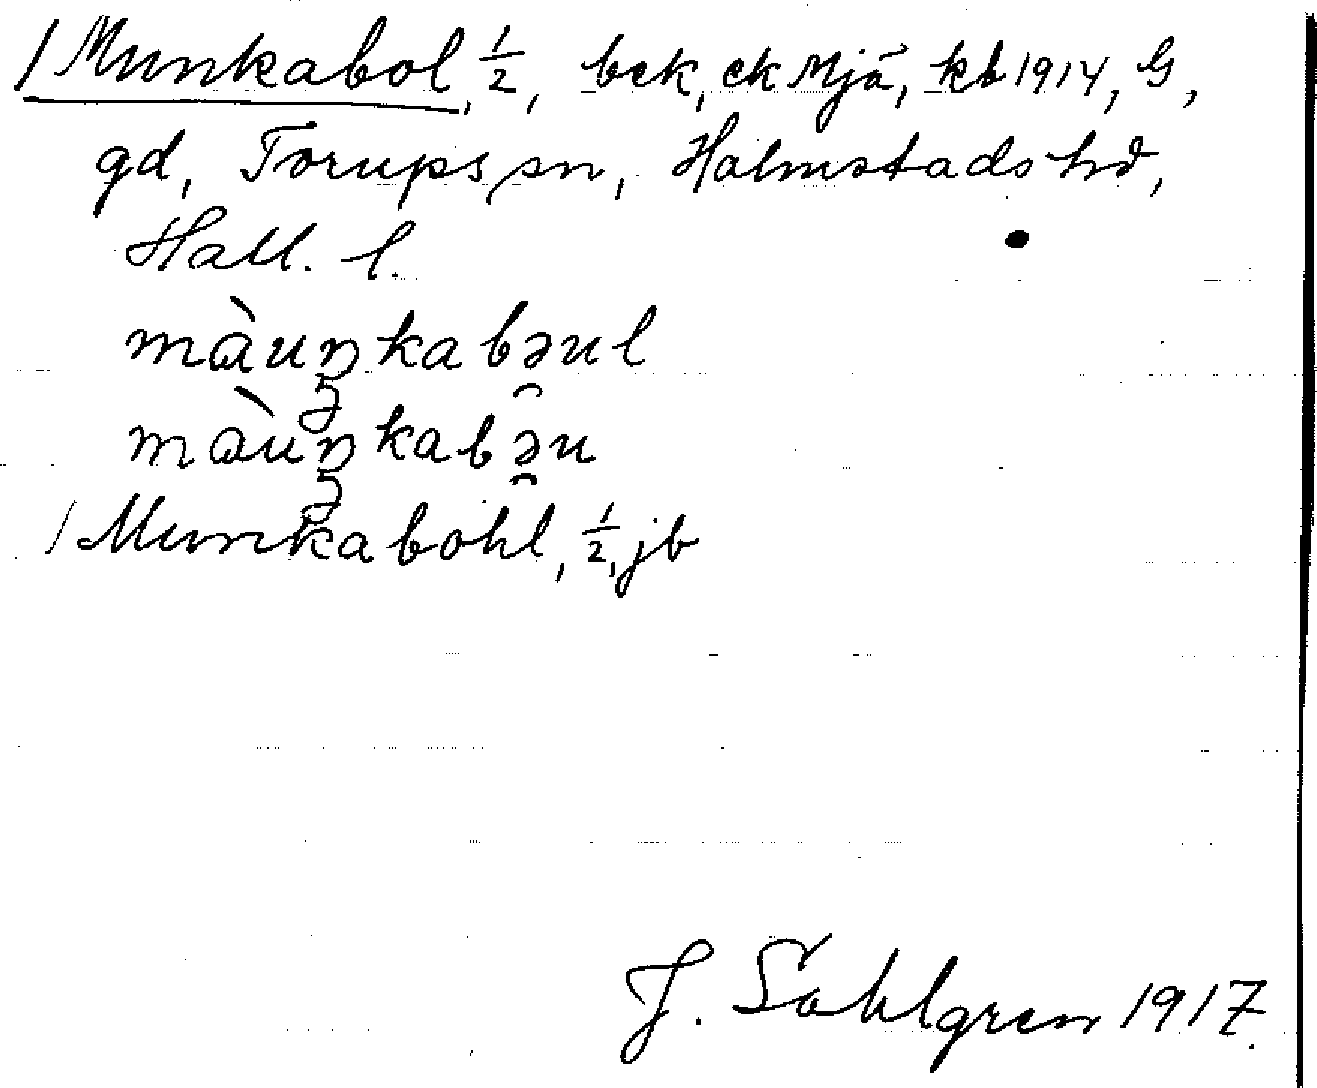 / Munkabol, 1/2, bek, ek Mjä, kb 1914, G,
gd, Torups sn, Halmstads hd,
Hall. l.
màuŋkabə̯ul
màuŋkabə̯u
/ Munkabohl, 1/2, jb
J. Sahlgren 1917.